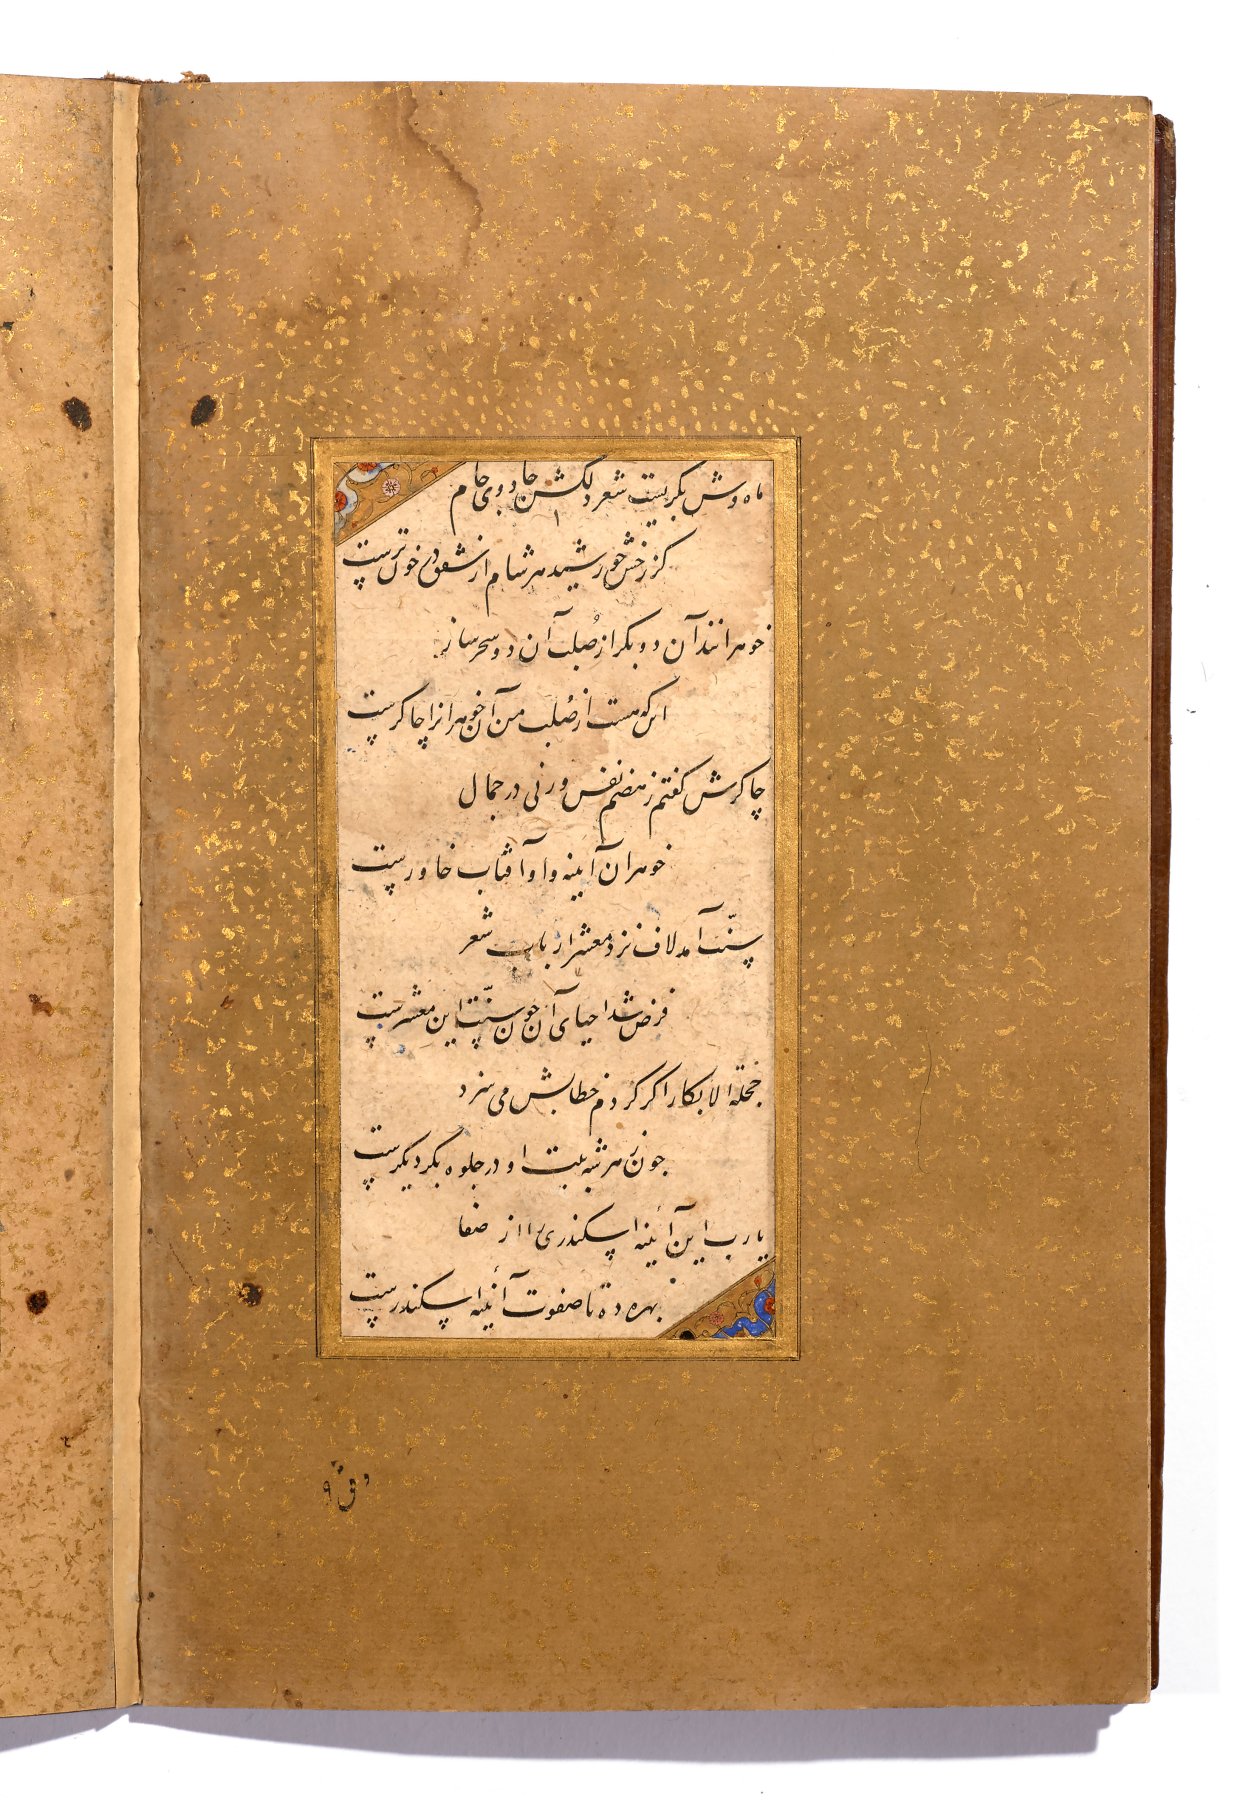 ماه وش بکریست شعر دلکش جادوی جام
کز رخش خورشید هر شام از شفق در خون ترست
خوهرانند آن دو بکر از صُلب آن دو سحر ساز
این که هست از صُلب من آن خوهرانرا چاکرست
چاکرش کفتم ز هضم نفس ورنی در جمال
خوهران آیینه وا و آفتاب خاورست
سنّت آمد لاف نزد معشر ارباب شعر
فرض شد احیای آن چون سنّت این معشرست
حجلة الابکار اکر کردم خطابش می سزد
چون ز هر شه بیت او در جلوه بکر دیکرست
یا رب این آئینه اسکندری را از صفا
بهره ده تا صفوت آئینه اسکندرست